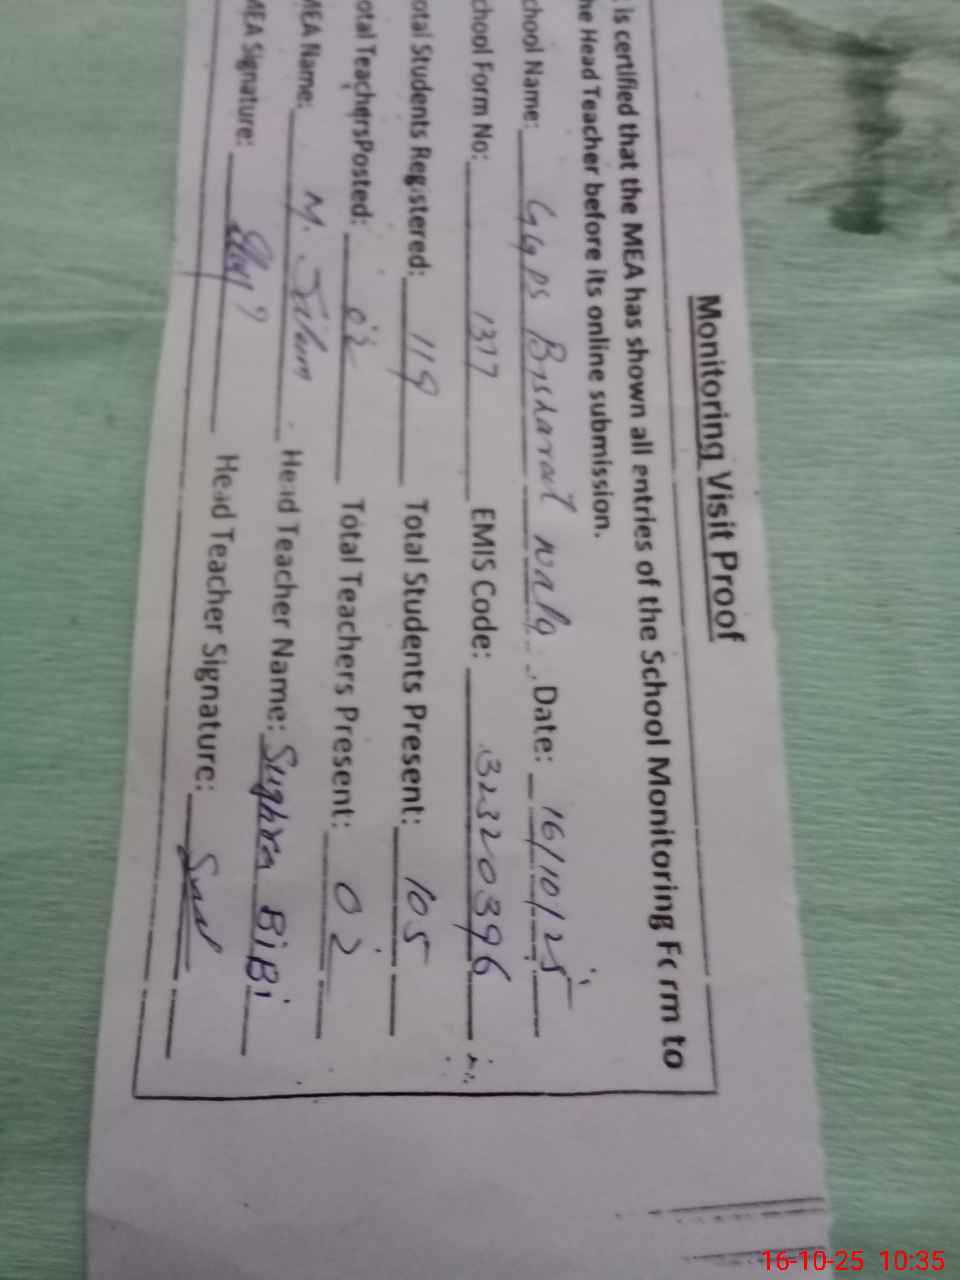 Monitoring Visit Proof
is certified that the MEA has shown all entries of the School Monitoring Form to
he Head Teacher before its online submission.
chool Name: GGPS Bisharat wala Date: 16/10/25
chool Form No: 1377 EMIS Code: 32320396
otal Students Registered: 119 Total Students Present: 105
otal TeachersPosted: 02 Total Teachers Present: 02
MEA Name: M. Head Teacher Name: Sughra BiBi
MEA Signature: Head Teacher Signature:
16-10-25 10:35